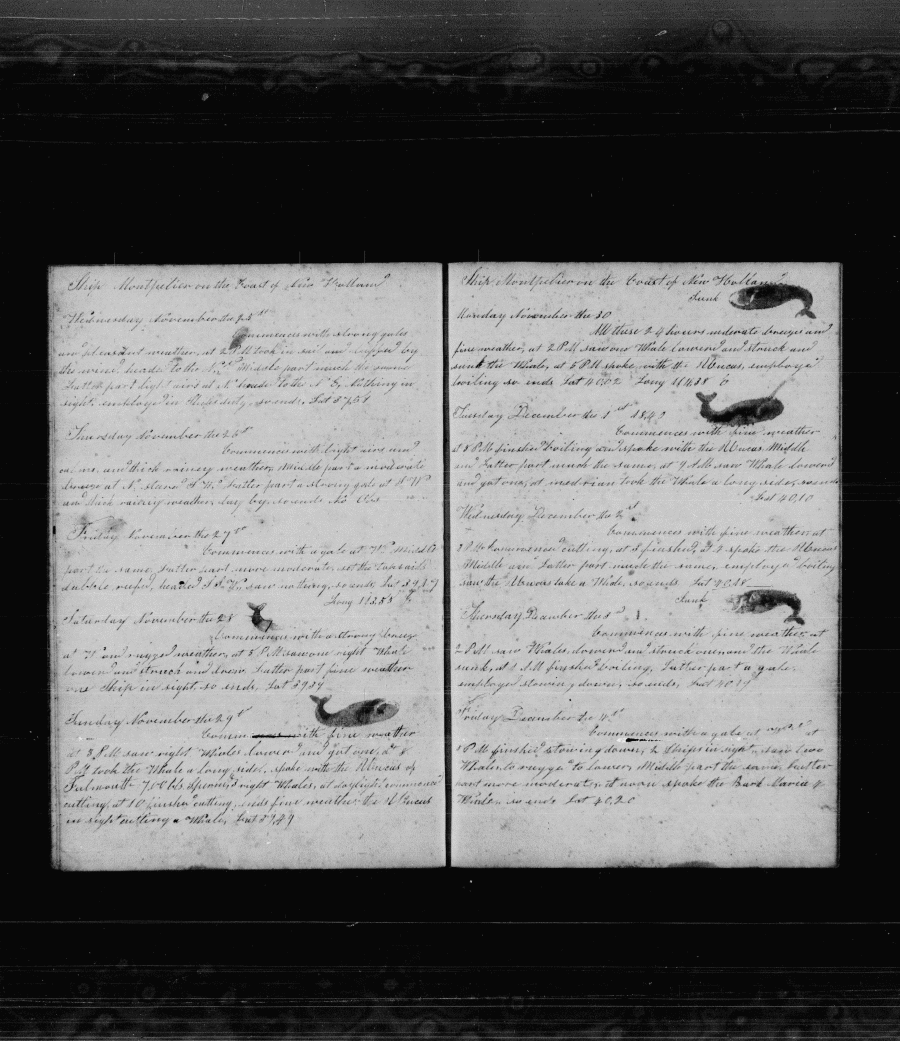 Ship Montpelier on the Coast of New Holland
Wednesday November the 25th
Commences with strong gales
and pleasant weather, at 2 PM took in sail and by
the wind heads to the N, Middle part much the same
Latter part light airs at heads to the N Nothing in
sight, employd in Ships duty, so ends, Lat 37,51
Thursday November the 26th
Commences with light airs and
and thick rainey weather, Middle part a moderate
breese at N, Latter part a strong gale at
and thick rainey weather, lay by, so ends No Obs
Friday November the 27th
Commences with a gale at Middle
part the same, Latter part more moderate, set the topsails
dubble reefed, headed saw nothing, so ends, Lat
Long
Saturday November the 28
Commences with a strong breeze
at and rugged weather, at 5 PM saw one right Whale
lowerd and struck and drew, Latter part fine weather
one Ship in sight, so ends, Lat 39,39
Sunday November the 29th
Commences with fine weather
at 3 PM saw right Whales lowerd and got one, at
PM took the Whale a long side, spoke with the Uncas of
Falmouth 700 bbls right Whales, at daylight commenced
cutting, at 10 finishd cutting, ends fine weather the Uncas
in sight cutting a Whale, Lat 39,49
Ship Montpelier on the Coast of New Holland
Sunk
Monday November the 30
All these 24 hours moderate breezes and
fine weather, at 2 PM saw one Whale lowerd and struck and
sunk the Whale, at 5 PM spoke with the Uncas, employd
boiling so ends Lat 40,02 Long
Tuesday December the 1st 1842
Commences with fine weather
at 8 PM finishd boiling and spoke with the Uncas Middle
and Latter part much the same, at 9 AM saw Whale lowerd
and got one, at meridian took the Whale a long side, so ends
Lat 40,10
Wednesday December the 2
Commences with fine weather, at
PM Commenced cutting, at 8 finishd, at 9 spoke the Uncas
Middle and Latter part much the same, employd boiling
saw the Uncas take a Whale, so ends. Lat
Sunk
Thursday December the 3d
Commences with fine weather, at
2 PM saw Whales, lowerd and struck one, and the Whale
sunk, at AM finishd boiling, Latter part a gale,
employd stowing down, so ends, Lat
Friday December the 4th
Commences with a gale at at
1 PM finishd stowing down, 2 Ships in sight, saw two
Whales, to rugged to lower, Middle part the same, Latter
part more moderate, at noon spoke the Bark Maria
Whales, so ends Lat 40,20